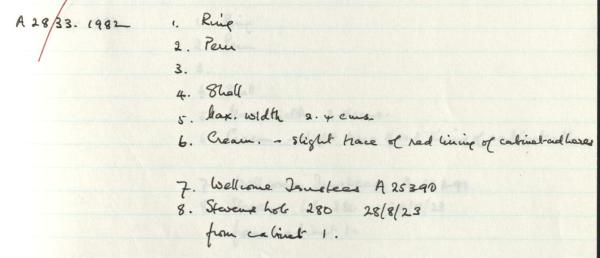 A 2833. 1982
1. Ring
2. Peru
3.
4. Shell
5. Max. width 2.4 cms.
6. Cream. - slight trace of red lining of cabinet adheres
7. Wellcome Trustees A 25390
8. Stevens lot 280 28/8/23
from cabinet 1.